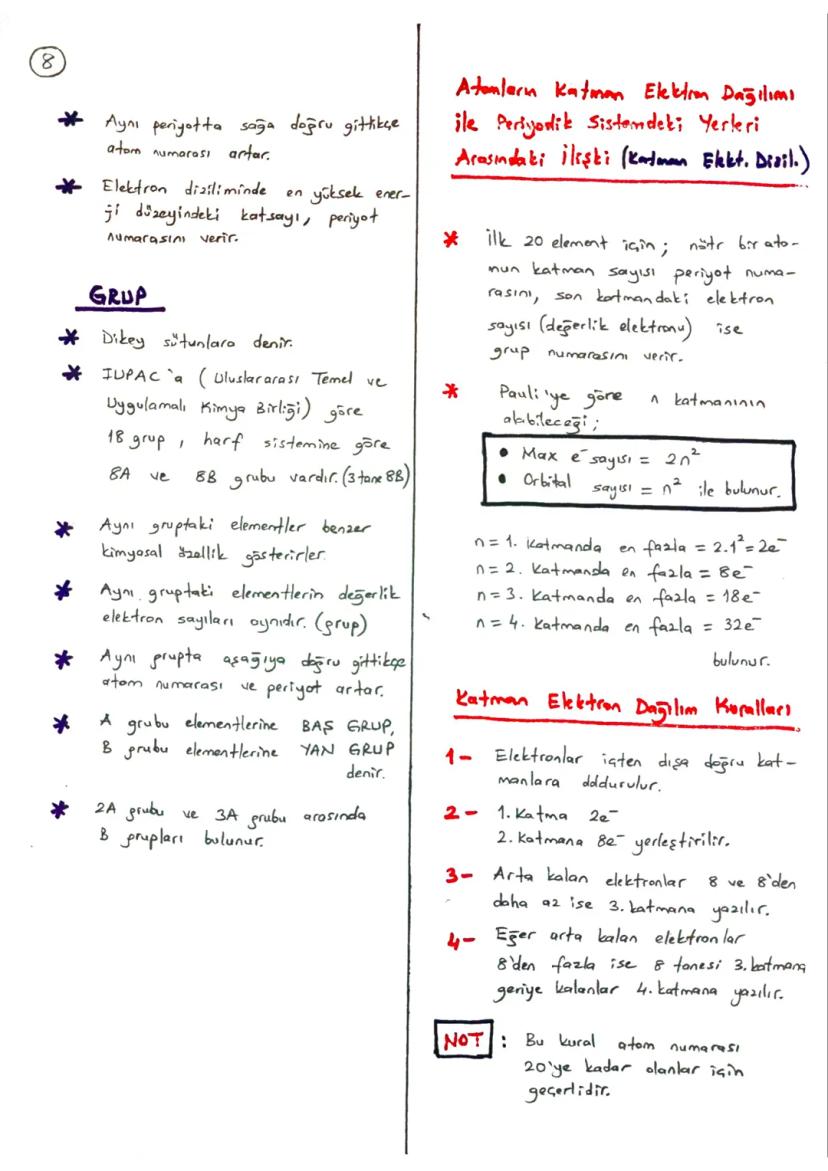 8
* Aynı periyotta sağa doğru gittikçe
atom numarası artar.
* Elektron diziliminde en yüksek ener-
ji düzeyindeki katsayı, periyot
numarasını verir.
GRUP
* Dikey sütunlara denir.
* IUPAC'a (Uluslararası Temel ve
Uygulamalı Kimya Birliği) göre
18 grup, harf sistemine göre
8A ve 8B grubu vardır. (3 tane 8B)
* Aynı gruptaki elementler benzer
kimyasal özellik gösterirler.
* Aynı gruptaki elementlerin değerlik
elektron sayıları aynıdır. (grup)
* Aynı grupta aşağıya doğru gittikçe
atom numarası ve periyot artar.
* A grubu elementlerine BAŞ GRUP,
B grubu elementlerine YAN GRUP
denir.
* 2A grubu ve 3A grubu arasında
B grupları bulunur.
Atomların Katman Elektron Dağılımı
ile Periyodik Sistemdeki Yerleri
Arasındaki İlişki (Katman Elekt. Dizil.)
* İlk 20 element için; nötr bir ato-
mun katman sayısı periyot numa-
rasını, son katmandaki elektron
sayısı (değerlik elektronu) ise
grup numarasını verir.
* Pauli'ye göre n katmanının
alabileceği;
• Max e⁻ sayısı = 2n²
• Orbital sayısı = n² ile bulunur.
n = 1. Katmanda en fazla = 2.1² = 2e⁻
n = 2. Katmanda en fazla = 8e⁻
n = 3. Katmanda en fazla = 18e⁻
n = 4. Katmanda en fazla = 32e⁻
bulunur.
Katman Elektron Dağılım Kuralları
1- Elektronlar içten dışa doğru kat-
manlara doldurulur.
2- 1. Katma 2e⁻
2. Katmana 8e⁻ yerleştirilir.
3- Arta kalan elektronlar 8 ve 8'den
daha az ise 3. katmana yazılır.
4- Eğer arta kalan elektronlar
8'den fazla ise 8 tanesi 3. katmana
geriye kalanlar 4. katmana yazılır.
NOT : Bu kural atom numarası
20'ye kadar olanlar için
geçerlidir.